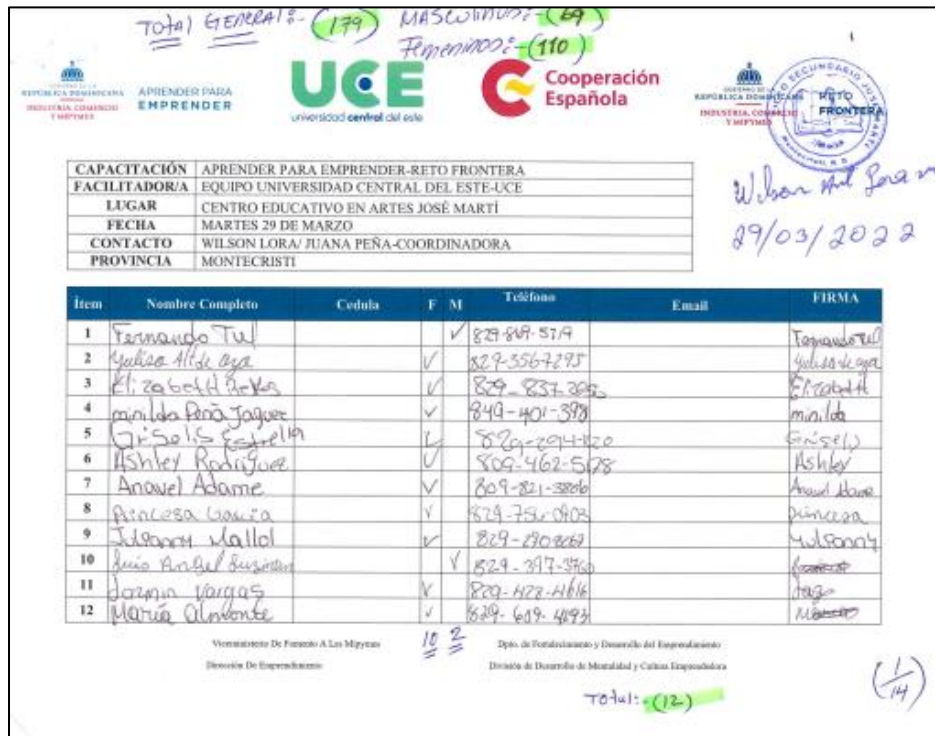 TOTAL GENERAL:-(179) MASCULINOS:-(69)
Femeninos:-(110)
REPÚBLICA DOMINICANA
INDUSTRIA, COMERCIO
Y MIPYMES
APRENDER PARA
EMPRENDER
UCE
universidad central del este
Cooperación
Española
REPÚBLICA DOMINICANA
INDUSTRIA, COMERCIO
Y MIPYMES
RETO
FRONTERA
Wilson
29/03/2022
CAPACITACIÓN APRENDER PARA EMPRENDER-RETO FRONTERA
FACILITADOR/A EQUIPO UNIVERSIDAD CENTRAL DEL ESTE-UCE
LUGAR CENTRO EDUCATIVO EN ARTES JOSÉ MARTÍ
FECHA MARTES 29 DE MARZO
CONTACTO WILSON LORA/ JUANA PEÑA-COORDINADORA
PROVINCIA MONTECRISTI
Ítem Nombre Completo Cedula F M Teléfono Email FIRMA
1 Fernando Tul ✓ Fernando Tul
2 Yulisa ✓ 829-3567295
3 Elizabeth Reyes ✓ Elizabeth
4 minilda Peña Jaquez ✓ 849-401-398 minilda
5 Griselis Estrella ✓
6 Ashley Rodriguez ✓ Ashley
7 Anavel Adame ✓ 809-821-3806 Anavel Adame
8 Princesa Garcia ✓ 829-756-0903 princesa
9 Mallol ✓
10 Luis Angel Guzman ✓
11 Jazmin Vargas ✓ 829-428-4616
12 María Almonte ✓ 829-609-4293
Viceministerio De Fomento A Las Mipymes 10 2 Dpto. de Fortalecimiento y Desarrollo del Emprendimiento
Dirección De Emprendimiento División de Desarrollo de Mentalidad y Cultura Emprendedora
Total:-(12)
(1/14)